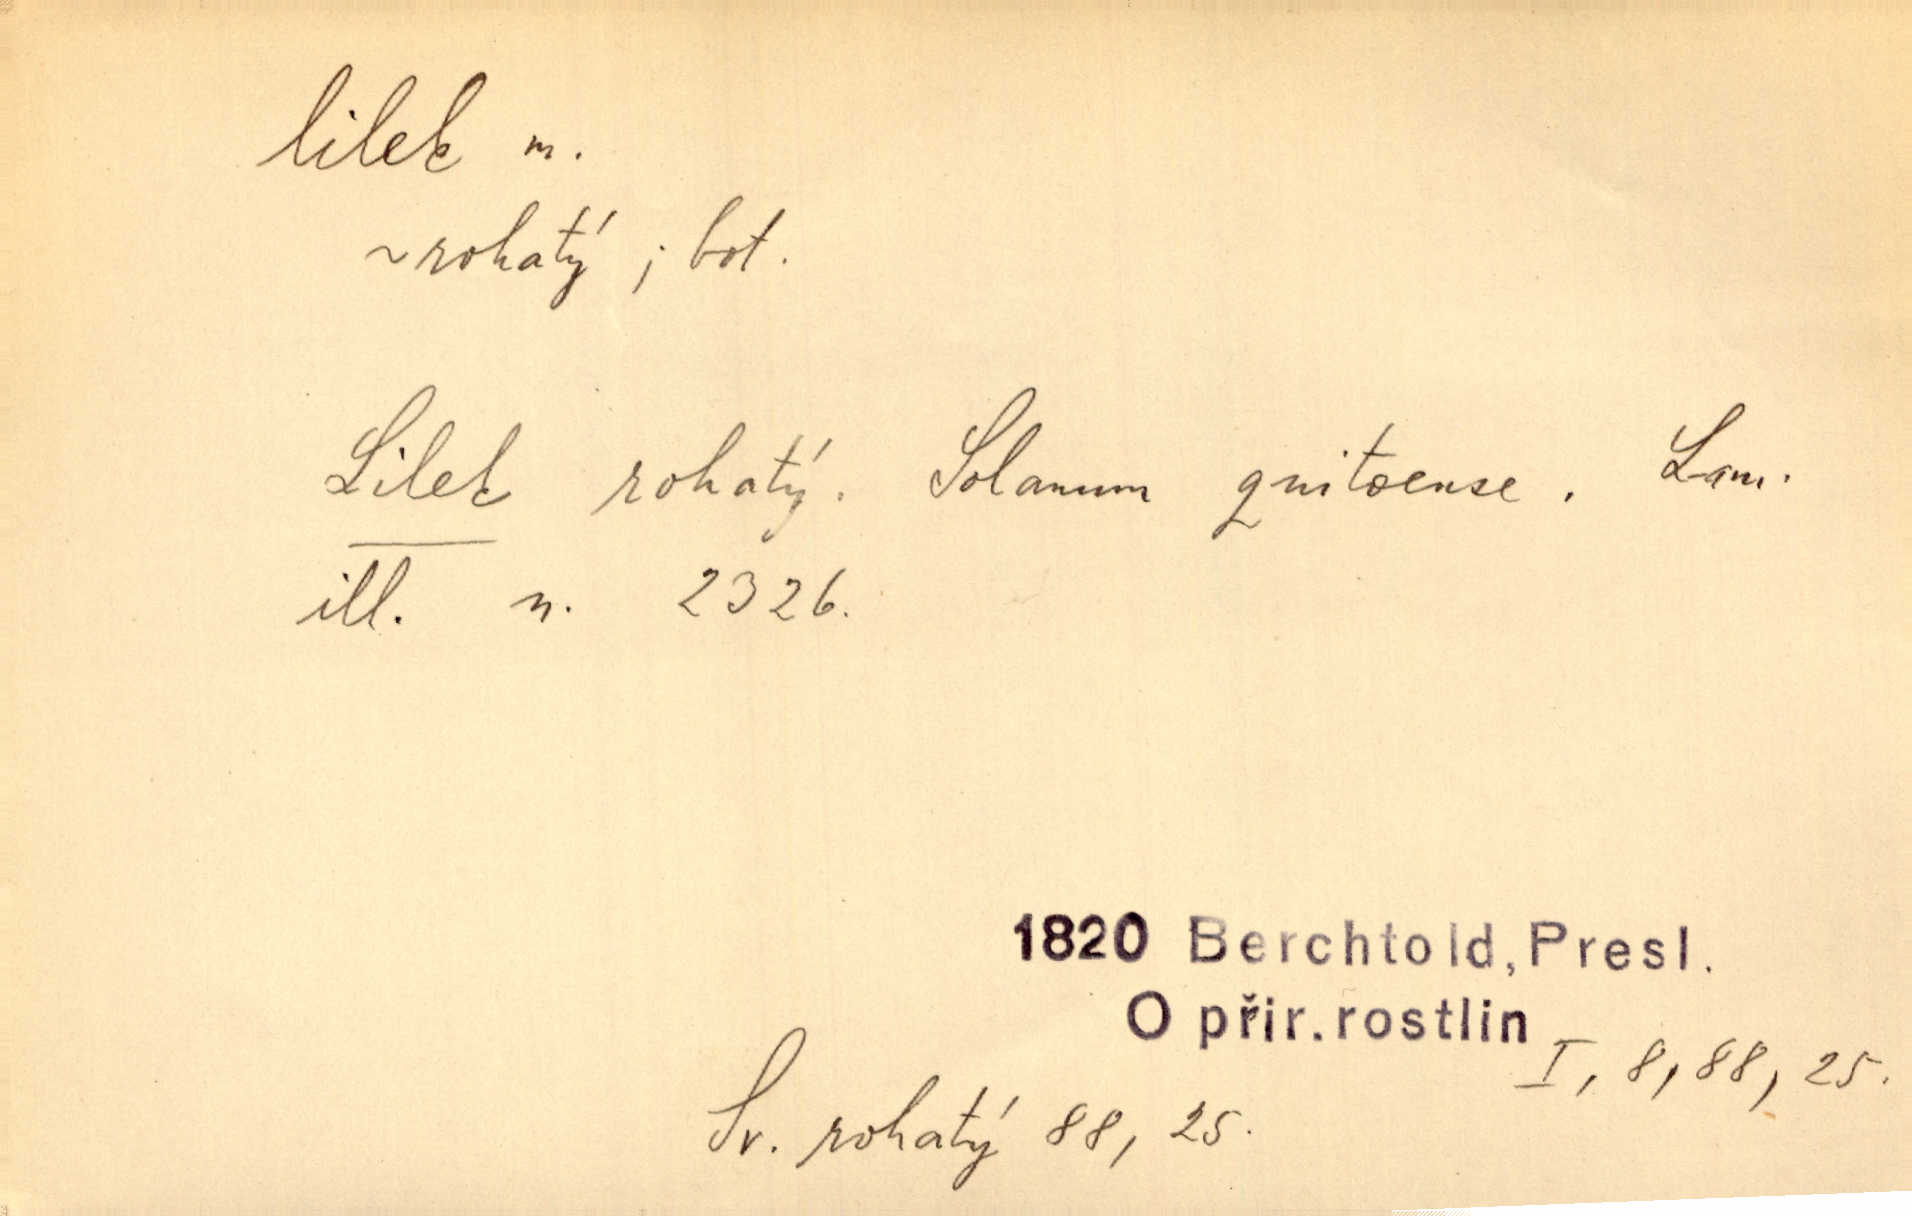 lilek m.
~rohatý; bot.
Lilek rohatý. Solanum quitoense. Lam.
ill. n. 2326.
1820 Berchtold, Presl.
O přir. rostlin
I, 8, 88, 25.
Sv. rohatý 88, 25.